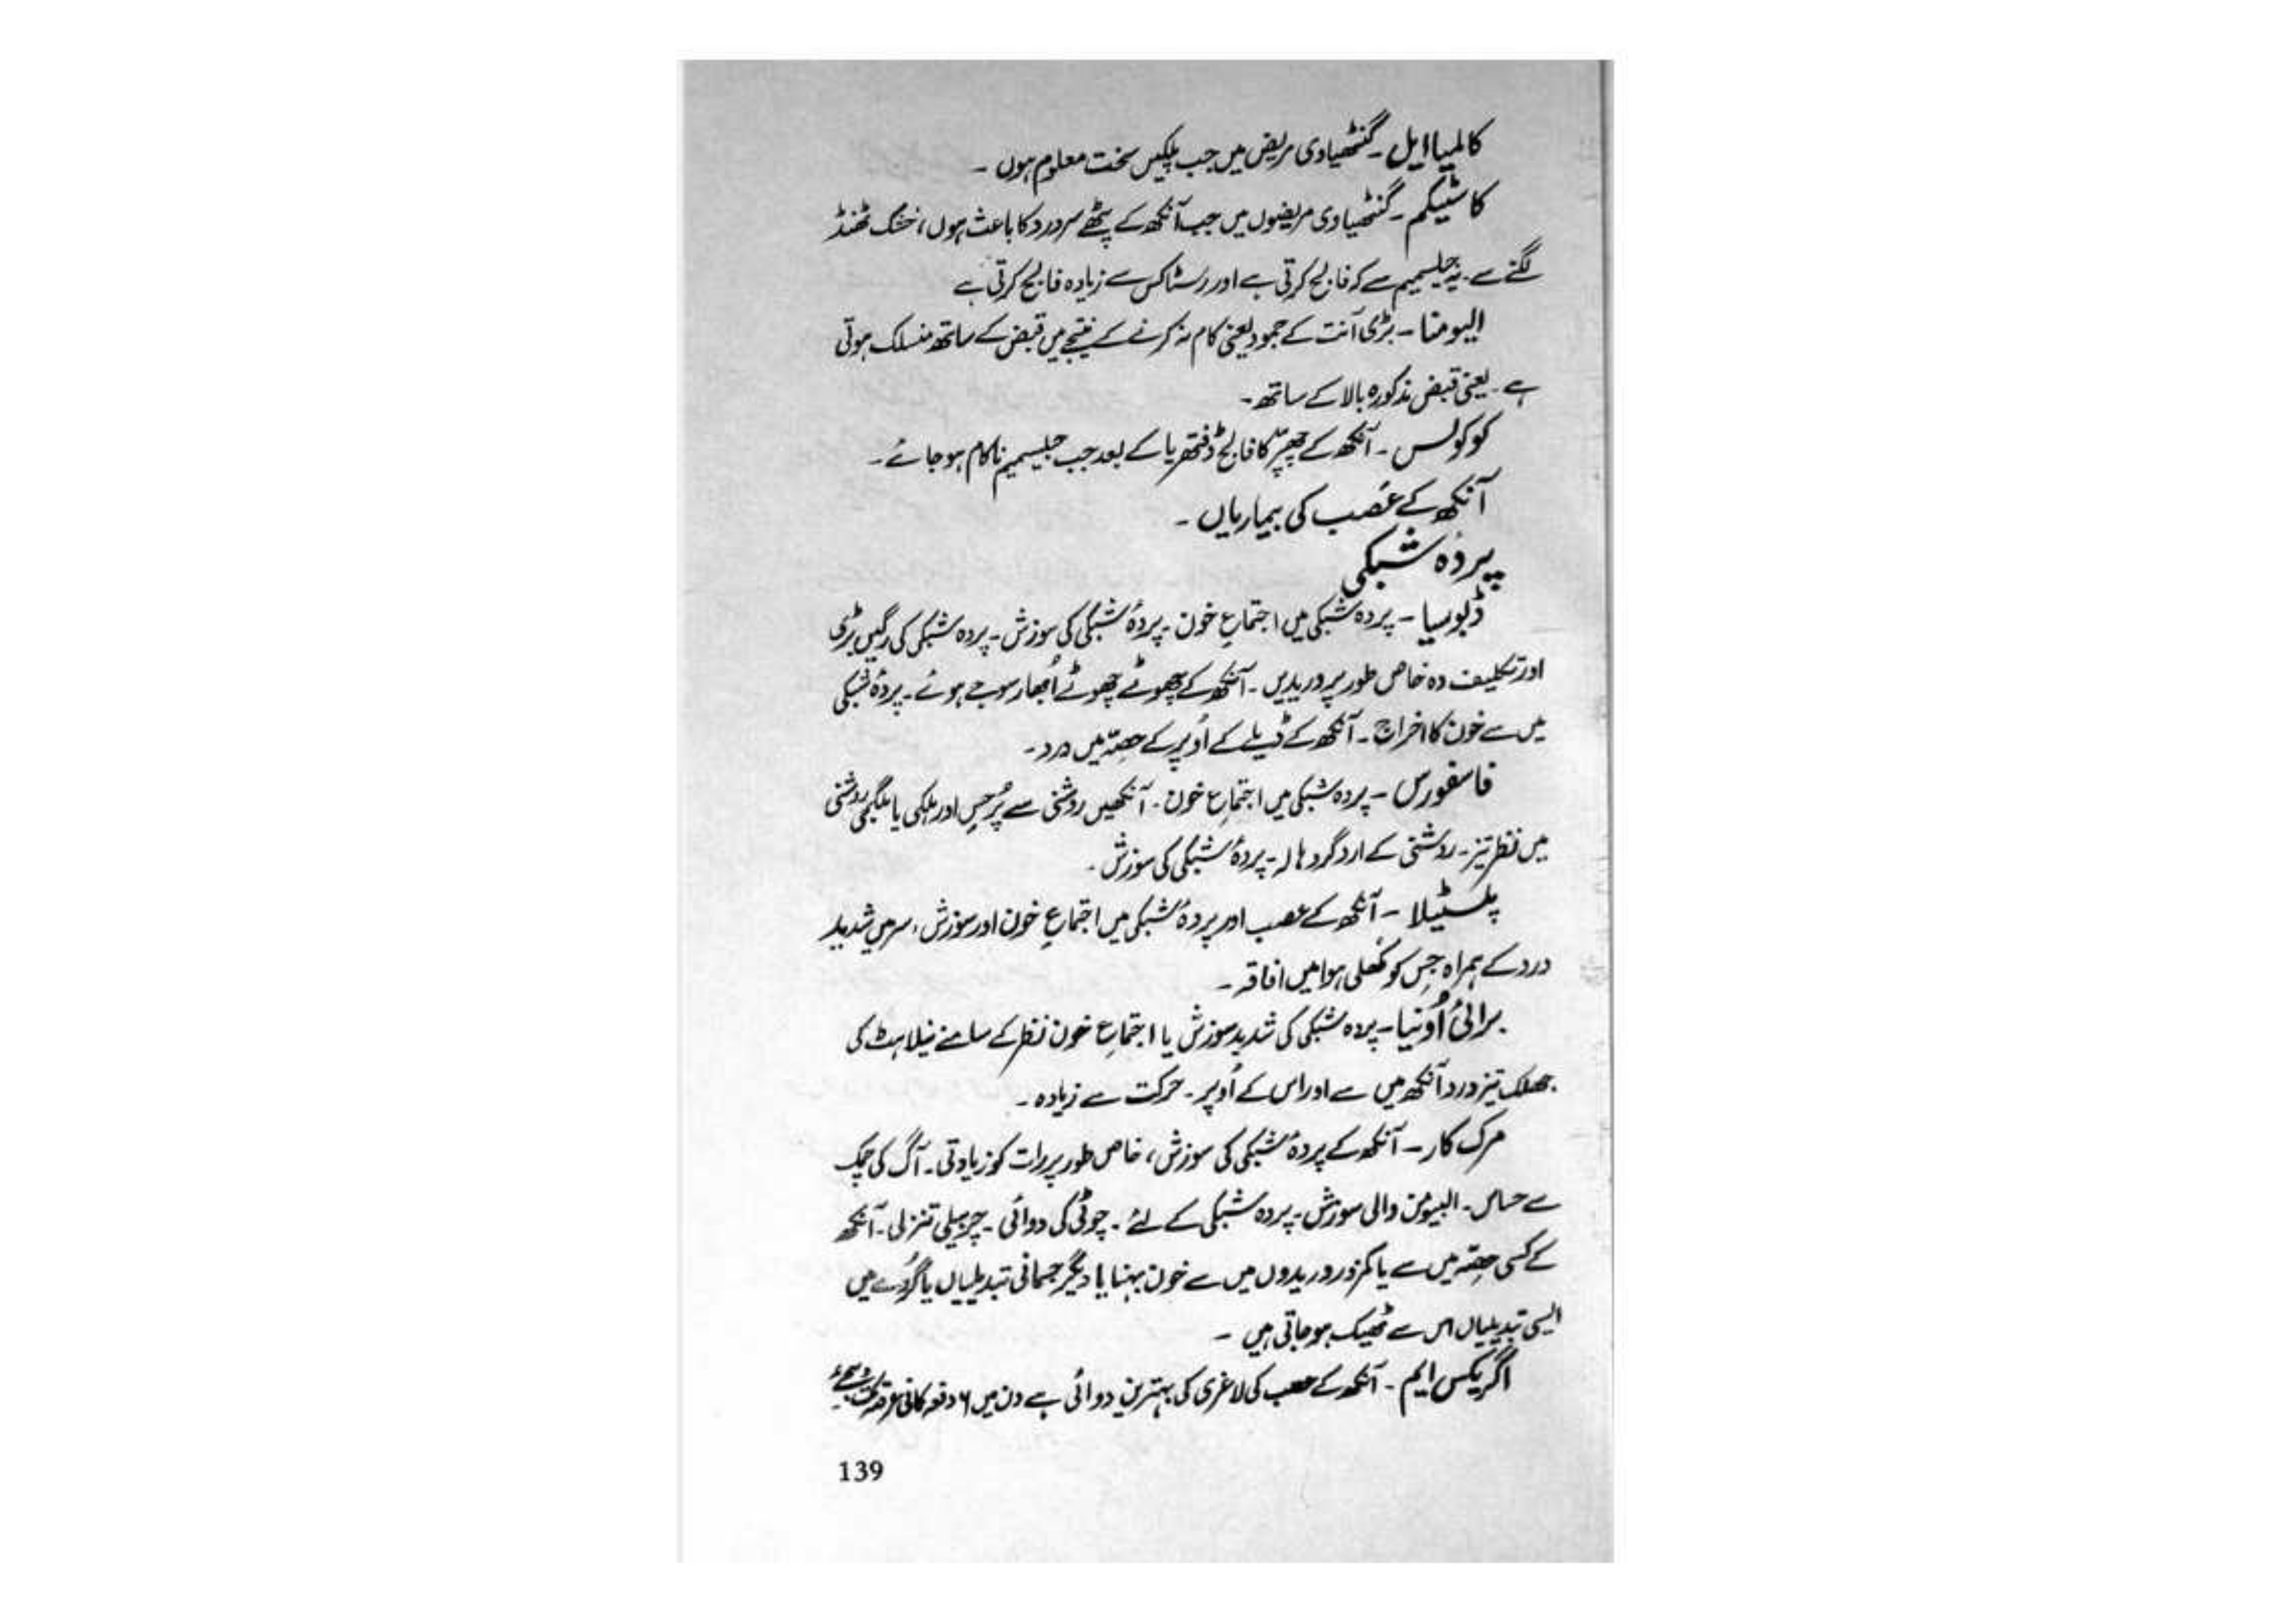 کالمیا ایل ۔ گنٹھیاوی مریض میں جب پلکیں سخت معلوم ہوں ۔
کاسٹیکم ۔ گنٹھیاوی مریضوں میں جب آنکھ کے پٹھے سردرد کا باعث ہوں، خشک ٹھنڈ
لگنے سے ۔ یہ جلسیمیم سے کم فالج کرتی ہے اور رسٹاکس سے زیادہ فالج کرتی ہے
الیومنا ۔ بڑی آنت کے جمود یعنی کام نہ کرنے کے نیتجے میں قبض کے ساتھ منسلک ہوتی
ہے ۔ یعنی قبض مذکورہ بالا کے ساتھ ۔
کوکولس ۔ آنکھ کے چھپر کا فالج ڈفتھریا کے بعد جب جیلسیمیم ناکام ہو جائے ۔
آنکھ کے عصب کی بیماریاں ۔
پردہ شبکی
ڈبوسیا ۔ پردہ شبکی میں اجتماعِ خون ۔ پردۂ شبکی کی سوزش ۔ پردہ شبکی کی رگیں بڑی
اور تکلیف دہ خاص طور پر وریدیں ۔ آنکھ کے چھوٹے چھوٹے اُبھار سوجے ہوئے ۔ پردۂ شبکی
میں سے خون کا اخراج ۔ آنکھ کے ڈیلے کے اُوپر کے حصّہ میں درد ۔
فاسفورس ۔ پردہ شبکی میں اجتماعِ خون ۔ آنکھیں روشنی سے پُرحِس اور ہلکی یا ملگجی روشنی
میں نظر تیز ۔ روشنی کے اردگرد ہالہ ۔ پردۂ شبکی کی سوزش ۔
پلسٹیلا ۔ آنکھ کے عصب اور پردۂ شبکی میں اجتماعِ خون اور سوزش، سر میں شدید
درد کے ہمراہ جِس کو کُھلی ہوا میں افاقہ ۔
برائی اُونیا ۔ پردہ شبکی کی شدید سوزش یا اجتماعِ خون نظر کے سامنے نیلاہٹ کی
جھلک تیز درد آنکھ میں سے اور اس کے اُوپر ۔ حرکت سے زیادہ ۔
مرک کار ۔ آنکھ کے پردۂ شبکی کی سوزش، خاص طور پر رات کو زیادتی ۔ آگ کی چمک
سے حساس ۔ البیومن والی سوزش ۔ پردہ شبکی کے لئے ۔ چوٹی کی دوائی ۔ چربیلی تنزلی ۔ آنکھ
کے کسی حصّہ میں سے یا کمزور وریدوں میں سے خون بہنا یا دیگر جسمانی تبدیلیاں یا گُردے میں
ایسی تبدیلیاں اس سے ٹھیک ہو جاتی ہیں ۔
اگریکس ایم ۔ آنکھ کے عصب کی لاغری کی بہترین دوائی ہے دن میں ۶ دفعہ کافی عرصہ تک
139